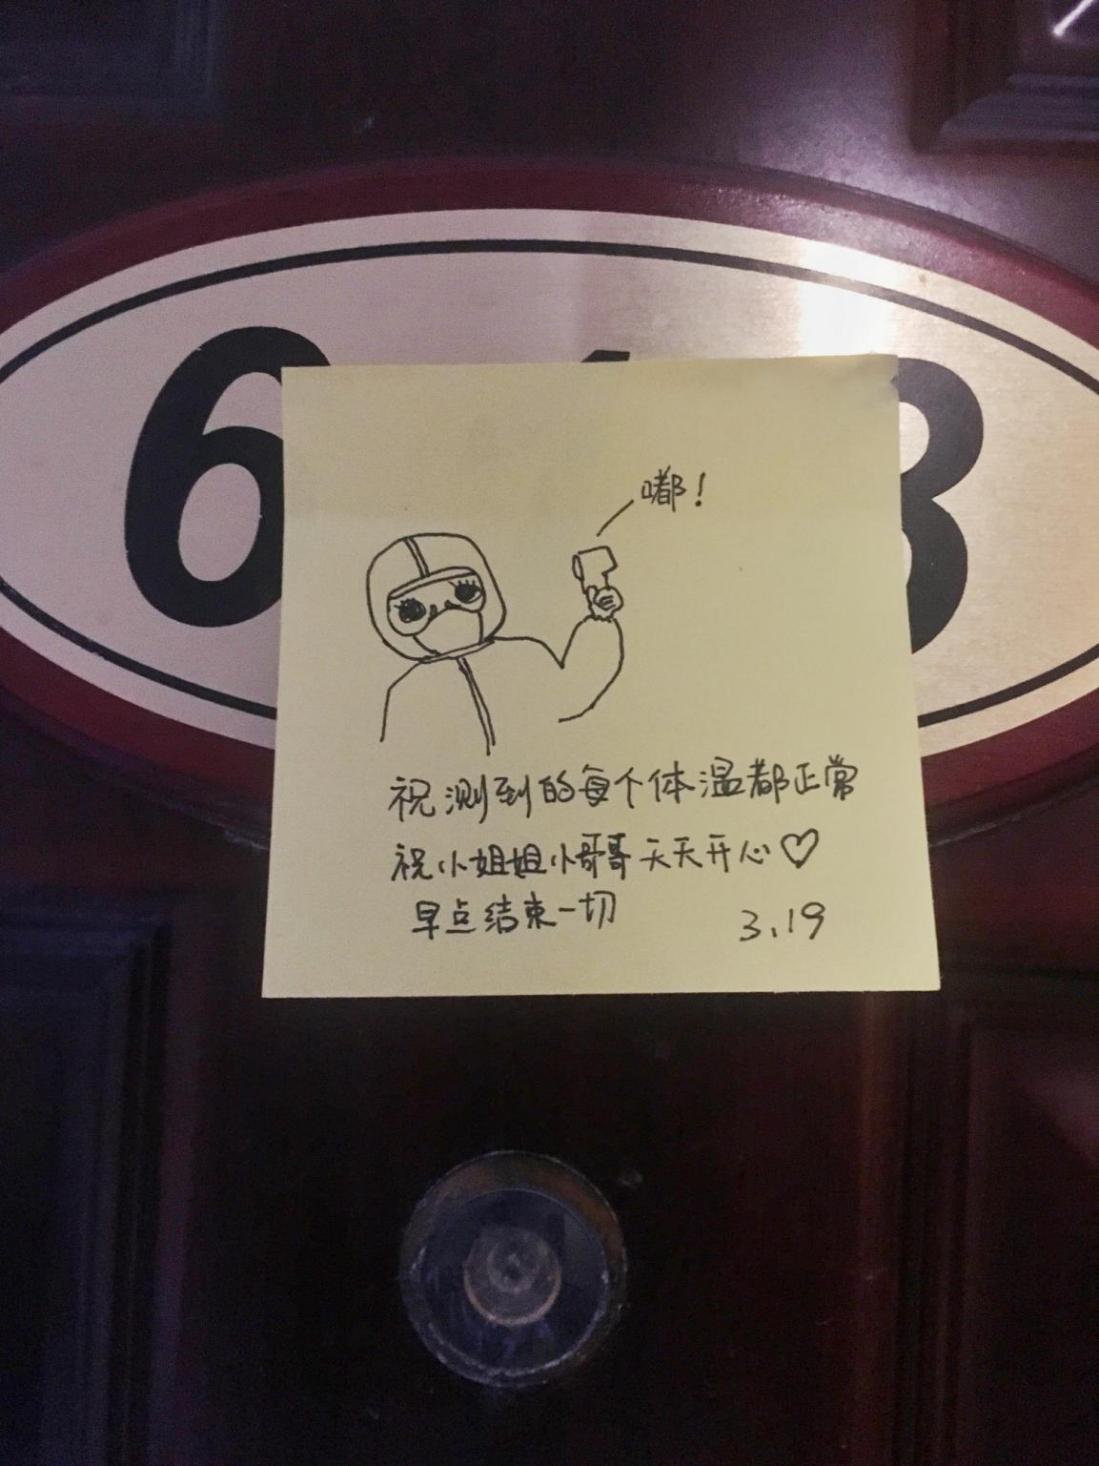 618
嘟！
祝测到的每个体温都正常
祝小姐姐小哥哥天天开心♡
早点结束一切 3.19